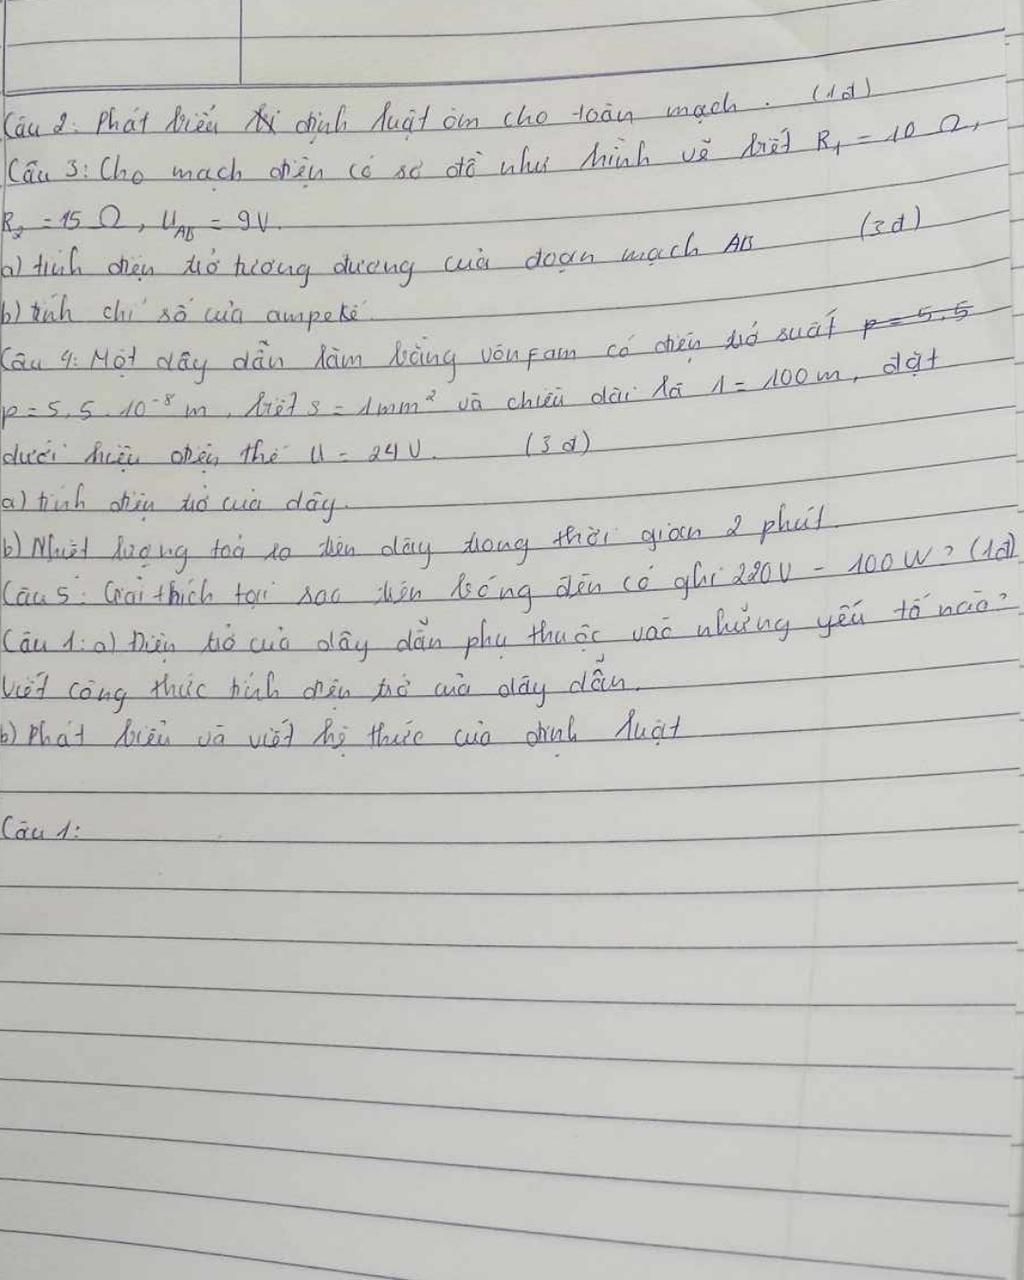 Câu 2: Phát biểu định luật ôm cho toàn mạch. (1đ)
Câu 3: Cho mạch điện có sơ đồ như hình vẽ biết R₁ = 10 Ω,
R₂ = 15 Ω, U_AB = 9V.
a) tính điện trở tương đương của đoạn mạch AB (3đ)
b) tính chỉ số của ampekế.
Câu 4: Một dây dẫn làm bằng vônfam có điện trở suất p = 5,5
p = 5,5.10⁻⁸ m, biết s = 1mm² và chiều dài là l = 100m, đặt
dưới hiệu điện thế U = 24V. (3đ)
a) tính điện trở của dây.
b) Nhiệt lượng toả ra trên dây trong thời gian 2 phút.
Câu 5: Giải thích tại sao trên bóng đèn có ghi 220V - 100W? (1đ)
Câu 1: a) Điện trở của dây dẫn phụ thuộc vào những yếu tố nào?
Viết công thức tính điện trở của dây dẫn.
b) Phát biểu và viết hệ thức của định luật
Câu 1: